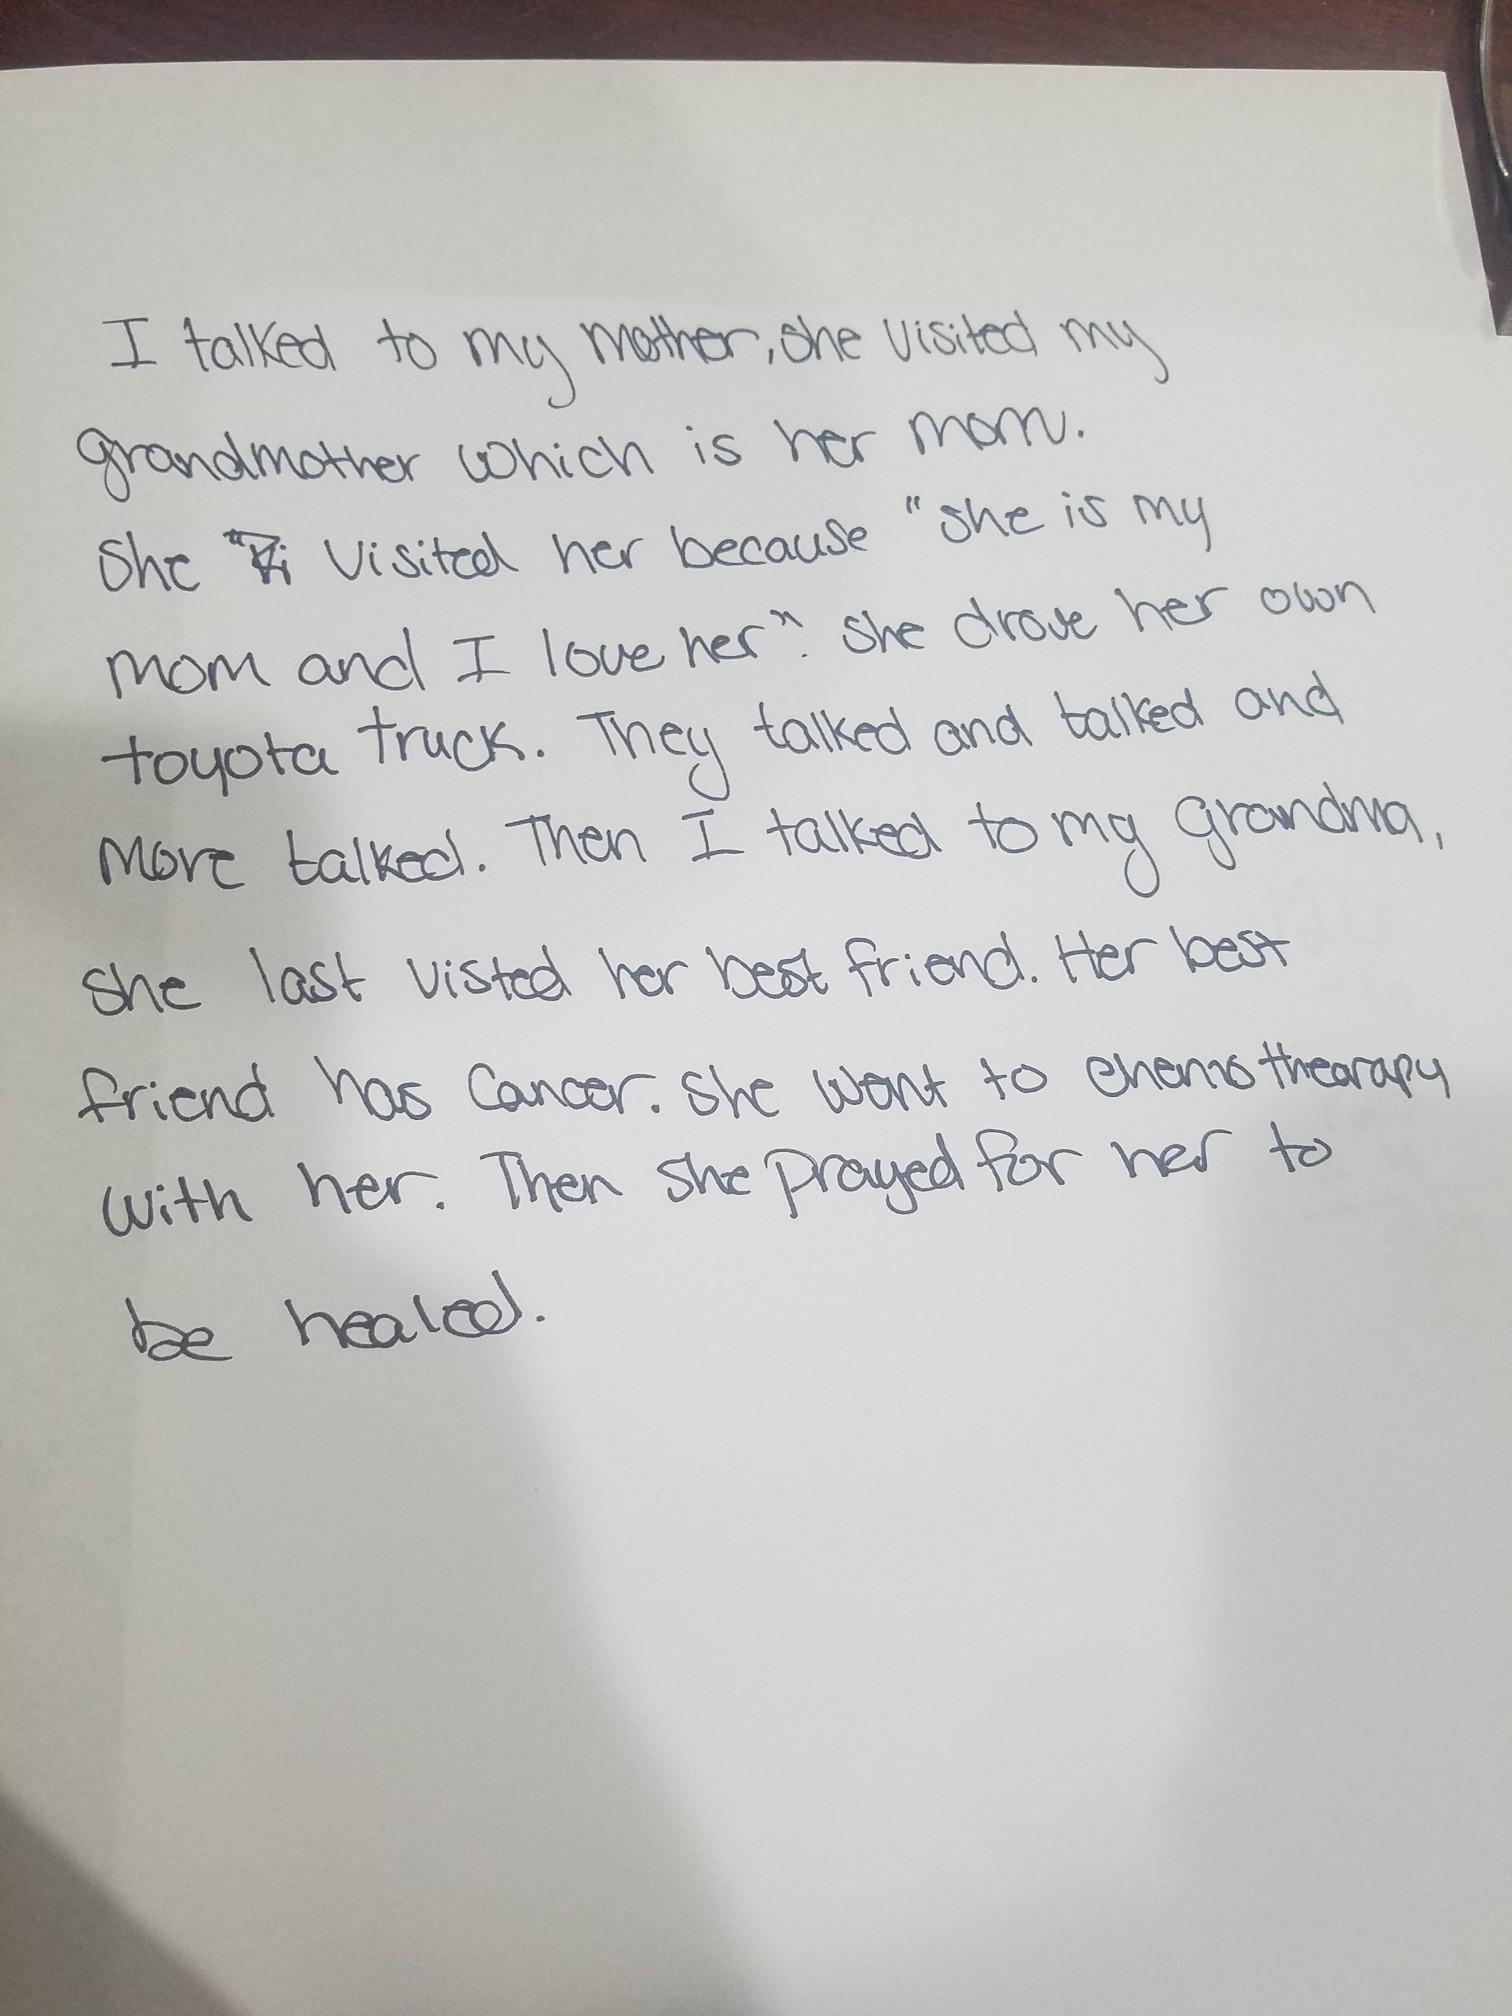 I talked to my mother, she visited my
grandmother which is her mom.
She visited her because "she is my
mom and I love her". She drove her own
toyota truck. They talked and talked and
more talked. Then I talked to my grandma,
she last visted her best friend. Her best
friend has Cancer. She went to chemothearapy
with her. Then she prayed for her to
be healed.